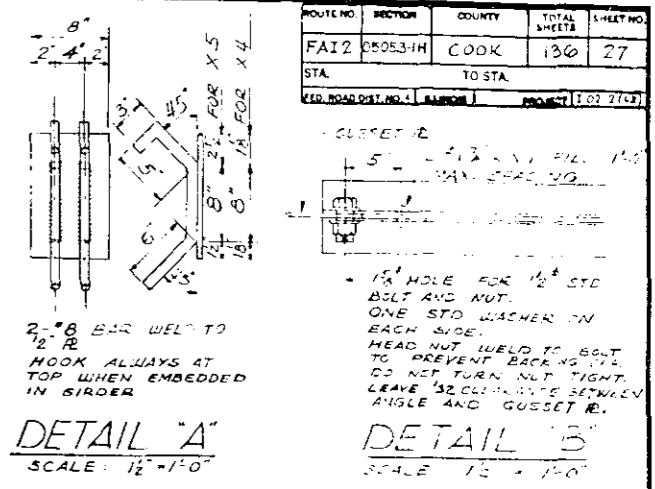 ROUTE NO. SECTION COUNTY TOTAL SHEETS SHEET NO.
FAI2 0505.3-1H COOK 136 27
STA. TO STA.
FED. ROAD DIST. NO. 4 ILLINOIS PROJECT
8"
2" 4" 2"
3"
45°
5"
6"
45°
FOR X5
FOR X4
8"
8"
2-#8 BAR WELD TO
1/2" PL
HOOK ALWAYS AT
TOP WHEN EMBEDDED
IN GIRDER
DETAIL "A"
SCALE: 1½"=1'-0"
GUSSET PL
5"
FILL
MAX. SPACING
HOLE FOR 1½"ø STD
BOLT AND NUT.
ONE STD WASHER ON
EACH SIDE.
HEAD NUT WELD TO BOLT
TO PREVENT BACKING
DO NOT TURN NUT TIGHT.
LEAVE 1/32 CLEARANCE BETWEEN
ANGLE AND GUSSET PL.
DETAIL "B"
SCALE 1½" = 1'-0"